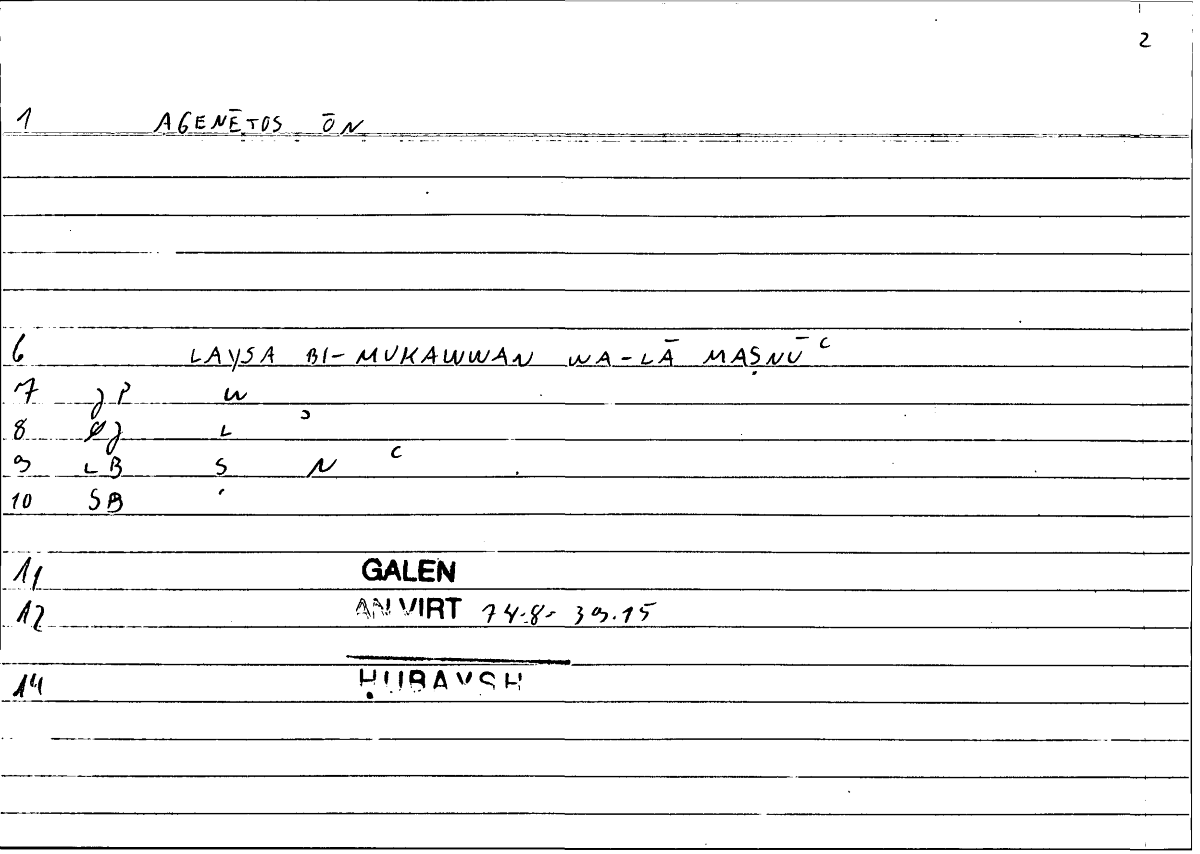 2
1 AGENĒTOS ŌN
6 LAYSA BI-MUKAWWAN WA-LĀ MAṢNŪʿ
7 P W
8 L ʾ
9 LB S N ʿ
10 SB
11 GALEN
12 AN VIRT 74.8- 39.15
14 ḤUBAYSH